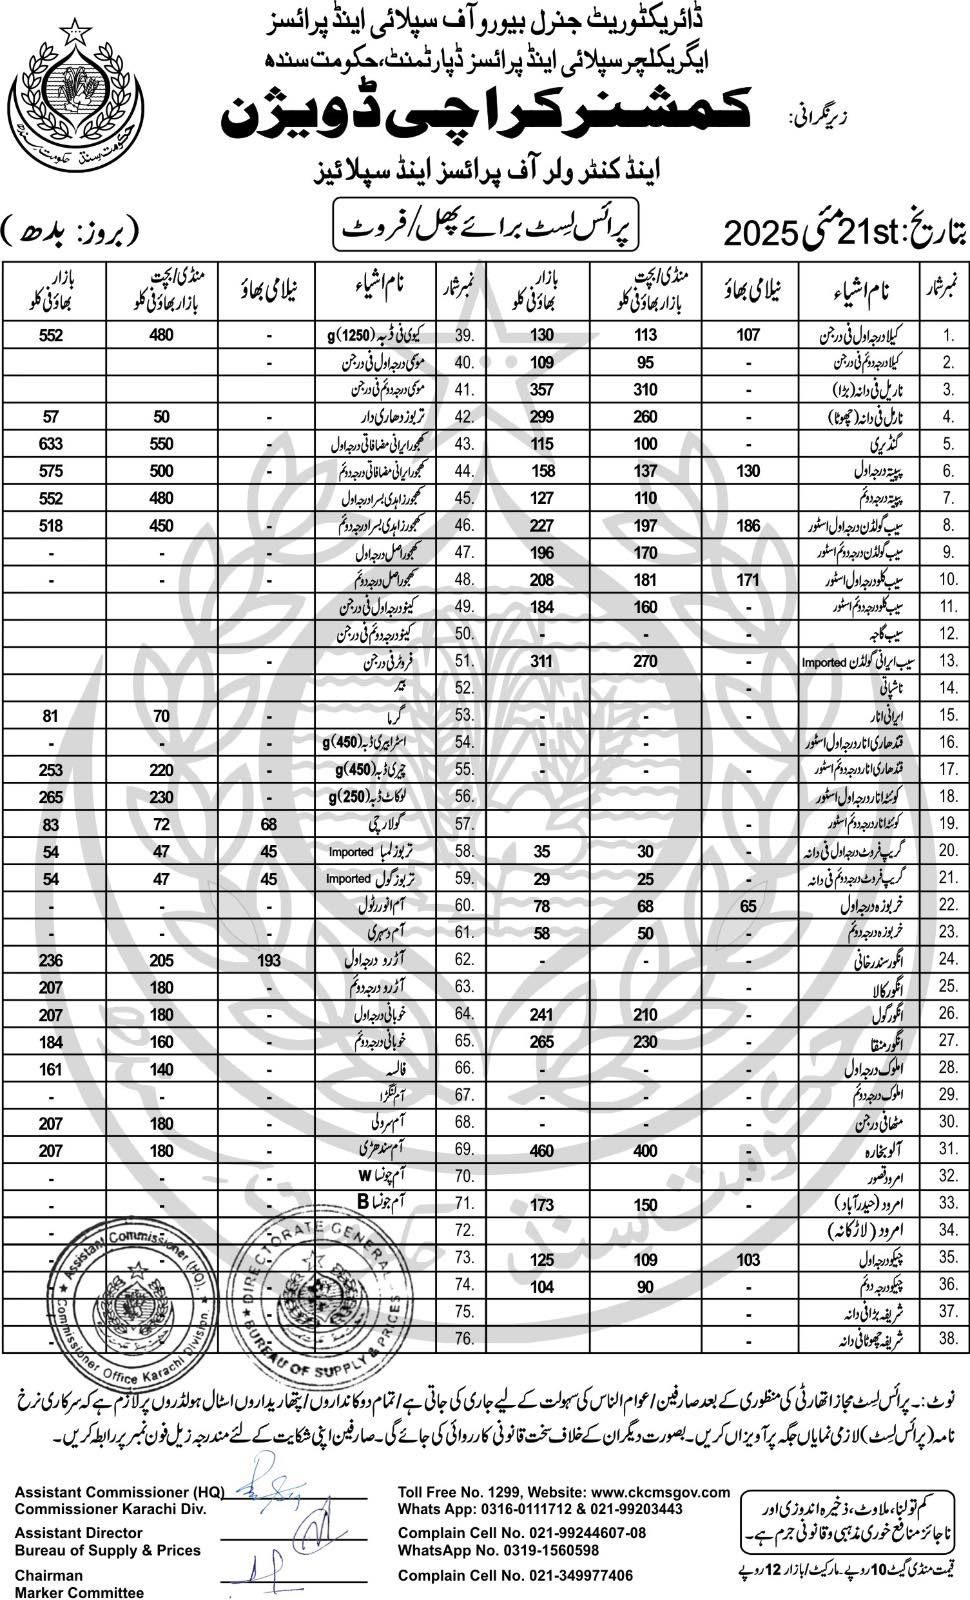 ڈائریکٹوریٹ جنرل بیورو آف سپلائی اینڈ پرائسز
ایگریکلچر سپلائی اینڈ پرائسز ڈپارٹمنٹ، حکومت سندھ
زیر نگرانی: کمشنر کراچی ڈویژن
اینڈ کنٹرولر آف پرائسز اینڈ سپلائیز
بتاریخ: 21st مئی 2025
پرائس لسٹ برائے پھل/فروٹ
(بروز: بدھ)
نمبر شمار نام اشیاء نیلامی بھاؤ منڈی/بچت بازار بھاؤ فی کلو بازار بھاؤ فی کلو
1. کیلا درجہ اول فی درجن 107 113 130
2. کیلا درجہ دوئم فی درجن - 95 109
3. ناریل فی دانہ (بڑا) - 310 357
4. ناریل فی دانہ (چھوٹا) - 260 299
5. گنڈیری - 100 115
6. پپیتہ درجہ اول 130 137 158
7. پپیتہ درجہ دوئم - 110 127
8. سیب گولڈن درجہ اول اسٹور 186 197 227
9. سیب گولڈن درجہ دوئم اسٹور - 170 196
10. سیب کلو درجہ اول اسٹور 171 181 208
11. سیب کلو درجہ دوئم اسٹور - 160 184
12. سیب گاجہ - - -
13. سیب ایرانی گولڈن Imported - 270 311
14. ناشپاتی -
15. ایرانی انار - - -
16. قندھاری انار درجہ اول اسٹور - - -
17. قندھاری انار درجہ دوئم اسٹور - - -
18. کوئٹہ انار درجہ اول اسٹور
19. کوئٹہ انار درجہ دوئم اسٹور -
20. گریپ فروٹ درجہ اول فی دانہ - 30 35
21. گریپ فروٹ درجہ دوئم فی دانہ - 25 29
22. خربوزہ درجہ اول 65 68 78
23. خربوزہ درجہ دوئم - 50 58
24. انگور سندرخانی - - -
25. انگور کالا
26. انگور گول - 210 241
27. انگور منقا - 230 265
28. املوک درجہ اول - - -
29. املوک درجہ دوئم
30. مٹھا فی درجن - - -
31. آلو بخارہ - 400 460
32. امرود قصور -
33. امرود (حیدرآباد) - 150 173
34. امرود (لاڑکانہ)
35. چیکو درجہ اول 103 109 125
36. چیکو درجہ دوئم - 90 104
37. شریفہ بڑا فی دانہ -
38. شریفہ چھوٹا فی دانہ -
نمبر شمار نام اشیاء نیلامی بھاؤ منڈی/بچت بازار بھاؤ فی کلو بازار بھاؤ فی کلو
39. کیوی فی ڈبہ (1250)g - 480 552
40. موسمی درجہ اول فی درجن -
41. موسمی درجہ دوئم فی درجن
42. تربوز دھاری دار - 50 57
43. کھجور ایرانی مضافاتی درجہ اول - 550 633
44. کھجور ایرانی مضافاتی درجہ دوئم - 500 575
45. کھجور زاہدی بسرا درجہ اول - 480 552
46. کھجور زاہدی بسرا درجہ دوئم - 450 518
47. کھجور اصل درجہ اول - - -
48. کھجور اصل درجہ دوئم - - -
49. کینو درجہ اول فی درجن
50. کینو درجہ دوئم فی درجن
51. فروٹر فی درجن -
52. بیر
53. گرما - 70 81
54. اسٹرابیری ڈبہ (450)g - - -
55. چیری ڈبہ (450)g - 220 253
56. لوکاٹ ڈبہ (250)g - 230 265
57. گولارچی 68 72 83
58. تربوز لمبا Imported 45 47 54
59. تربوز گول Imported 45 47 54
60. آم انور رٹول - - -
61. آم دسہری - - -
62. آڑرو درجہ اول 193 205 236
63. آڑرو درجہ دوئم - 180 207
64. خوبانی درجہ اول - 180 207
65. خوبانی درجہ دوئم - 160 184
66. فالسہ - 140 161
67. آم لنگڑا - - -
68. آم سرولی - 180 207
69. آم سندھڑی - 180 207
70. آم چونسا W - - -
71. آم چونسا B - - -
72.
73.
74.
75.
76.
Assistant Commissioner (HQ)
Commissioner Office Karachi Division
DIRECTORATE GENERAL
BUREAU OF SUPPLY & PRICES
نوٹ:۔ پرائس لسٹ مجاز اتھارٹی کی منظوری کے بعد صارفین/عوام الناس کی سہولت کے لیے جاری کی جاتی ہے/تمام دوکانداروں/پتھاریداروں اسٹال ہولڈروں پر لازم ہے کہ سرکاری نرخ
نامہ (پرائس لسٹ) لازمی نمایاں جگہ پر آویزاں کریں۔ بصورت دیگر ان کے خلاف سخت قانونی کارروائی کی جائے گی۔ صارفین اپنی شکایت کے لئے مندرجہ زیل فون نمبر پر رابطہ کریں۔
Assistant Commissioner (HQ)
Commissioner Karachi Div.
Assistant Director
Bureau of Supply & Prices
Chairman
Marker Committee
Toll Free No. 1299, Website: www.ckcmsgov.com
Whats App: 0316-0111712 & 021-99203443
Complain Cell No. 021-99244607-08
WhatsApp No. 0319-1560598
Complain Cell No. 021-349977406
کم تولنا، ملاوٹ، ذخیرہ اندوزی اور
ناجائز منافع خوری مذہبی و قانونی جرم ہے۔
قیمت منڈی گیٹ 10 روپے۔ مارکیٹ/بازار 12 روپے